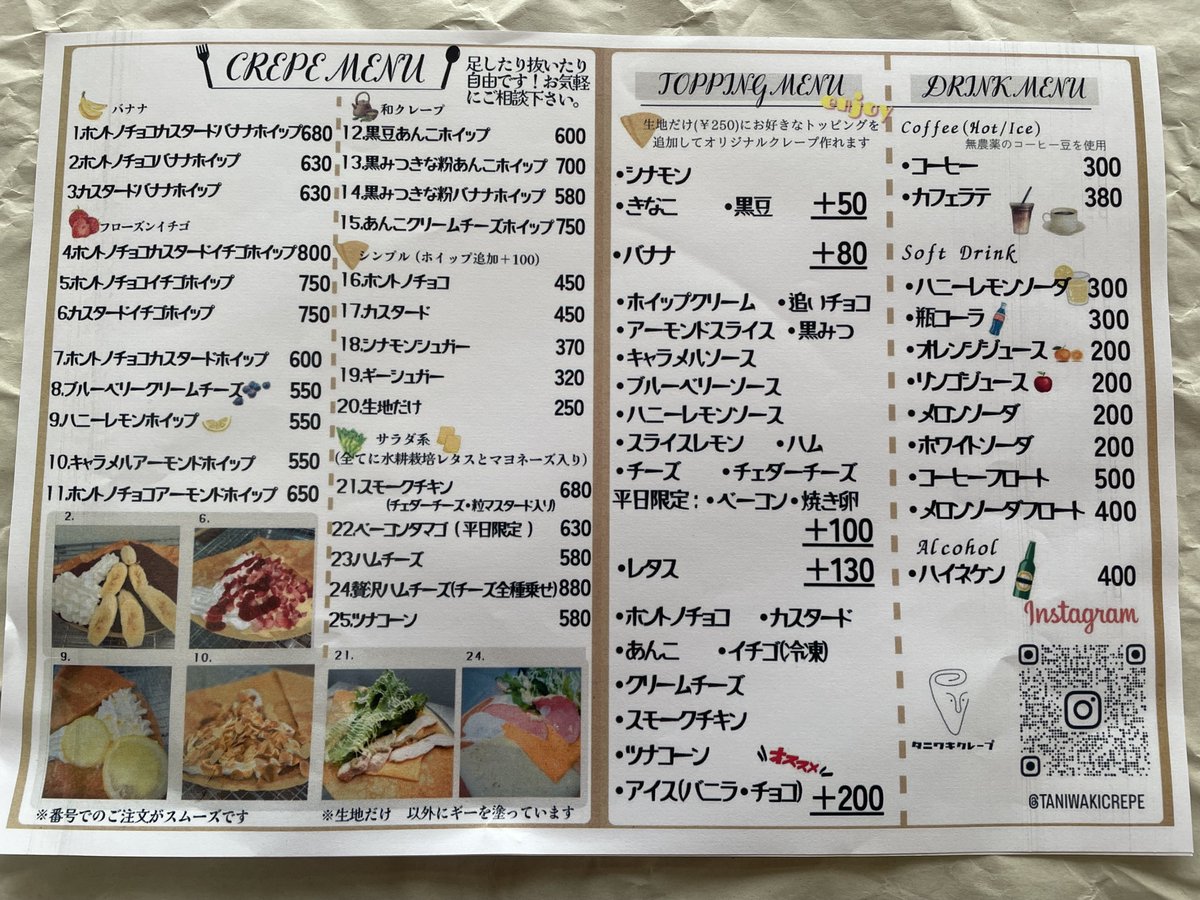 CREPE MENU
足したり抜いたり
自由です！お気軽
にご相談下さい。
バナナ
1.ホントノチョコカスタードバナナホイップ680
2.ホントノチョコバナナホイップ 630
3.カスタードバナナホイップ 630
フローズンイチゴ
4.ホントノチョコカスタードイチゴホイップ800
5.ホントノチョコイチゴホイップ 750
6.カスタードイチゴホイップ 750
7.ホントノチョコカスタードホイップ 600
8.ブルーベリークリームチーズ 550
9.ハニーレモンホイップ 550
10.キャラメルアーモンドホイップ 550
11.ホントノチョコアーモンドホイップ 650
和クレープ
12.黒豆あんこホイップ 600
13.黒みつきな粉あんこホイップ 700
14.黒みつきな粉バナナホイップ 580
15.あんこクリームチーズホイップ 750
シンプル（ホイップ追加＋100）
16.ホントノチョコ 450
17.カスタード 450
18.シナモンシュガー 370
19.ギーシュガー 320
20.生地だけ 250
サラダ系
(全てに水耕栽培レタスとマヨネーズ入り)
21.スモークチキン 680
(チェダーチーズ・粒マスタード入り)
22.ベーコンタマゴ（平日限定） 630
23.ハムチーズ 580
24.贅沢ハムチーズ(チーズ全種乗せ) 880
25.ツナコーン 580
2.
6.
9.
10.
21.
24.
※番号でのご注文がスムーズです
※生地だけ 以外にギーを塗っています
TOPPING MENU
enjoy
生地だけ(¥250)にお好きなトッピングを
追加してオリジナルクレープ作れます
・シナモン
・きなこ ・黒豆 +50
・バナナ +80
・ホイップクリーム ・追いチョコ
・アーモンドスライス ・黒みつ
・キャラメルソース
・ブルーベリーソース
・ハニーレモンソース
・スライスレモン ・ハム
・チーズ ・チェダーチーズ
平日限定：・ベーコン・焼き卵
+100
・レタス +130
・ホントノチョコ ・カスタード
・あんこ ・イチゴ(冷凍)
・クリームチーズ
・スモークチキン
・ツナコーン
オススメ
・アイス(バニラ・チョコ) +200
DRINK MENU
Coffee(Hot/Ice)
無農薬のコーヒー豆を使用
・コーヒー 300
・カフェラテ 380
Soft Drink
・ハニーレモンソーダ 300
・瓶コーラ 300
・オレンジジュース 200
・リンゴジュース 200
・メロンソーダ 200
・ホワイトソーダ 200
・コーヒーフロート 500
・メロンソーダフロート 400
Alcohol
・ハイネケン 400
Instagram
タニワキクレープ
@TANIWAKICREPE